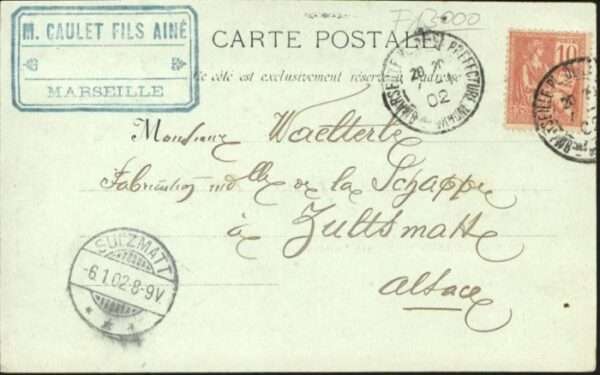 M. CAULET FILS AINÉ
MARSEILLE
F 13000
CARTE POSTALE
Ce côté est exclusivement réservé à l'adresse
10
MARSEILLE PREFECTURE
02
Monsieur Waelterlé
Fabrication de la Schappe
à Zultzmatt
Alsace
SULZMATT
-6.1.02.8-9V.